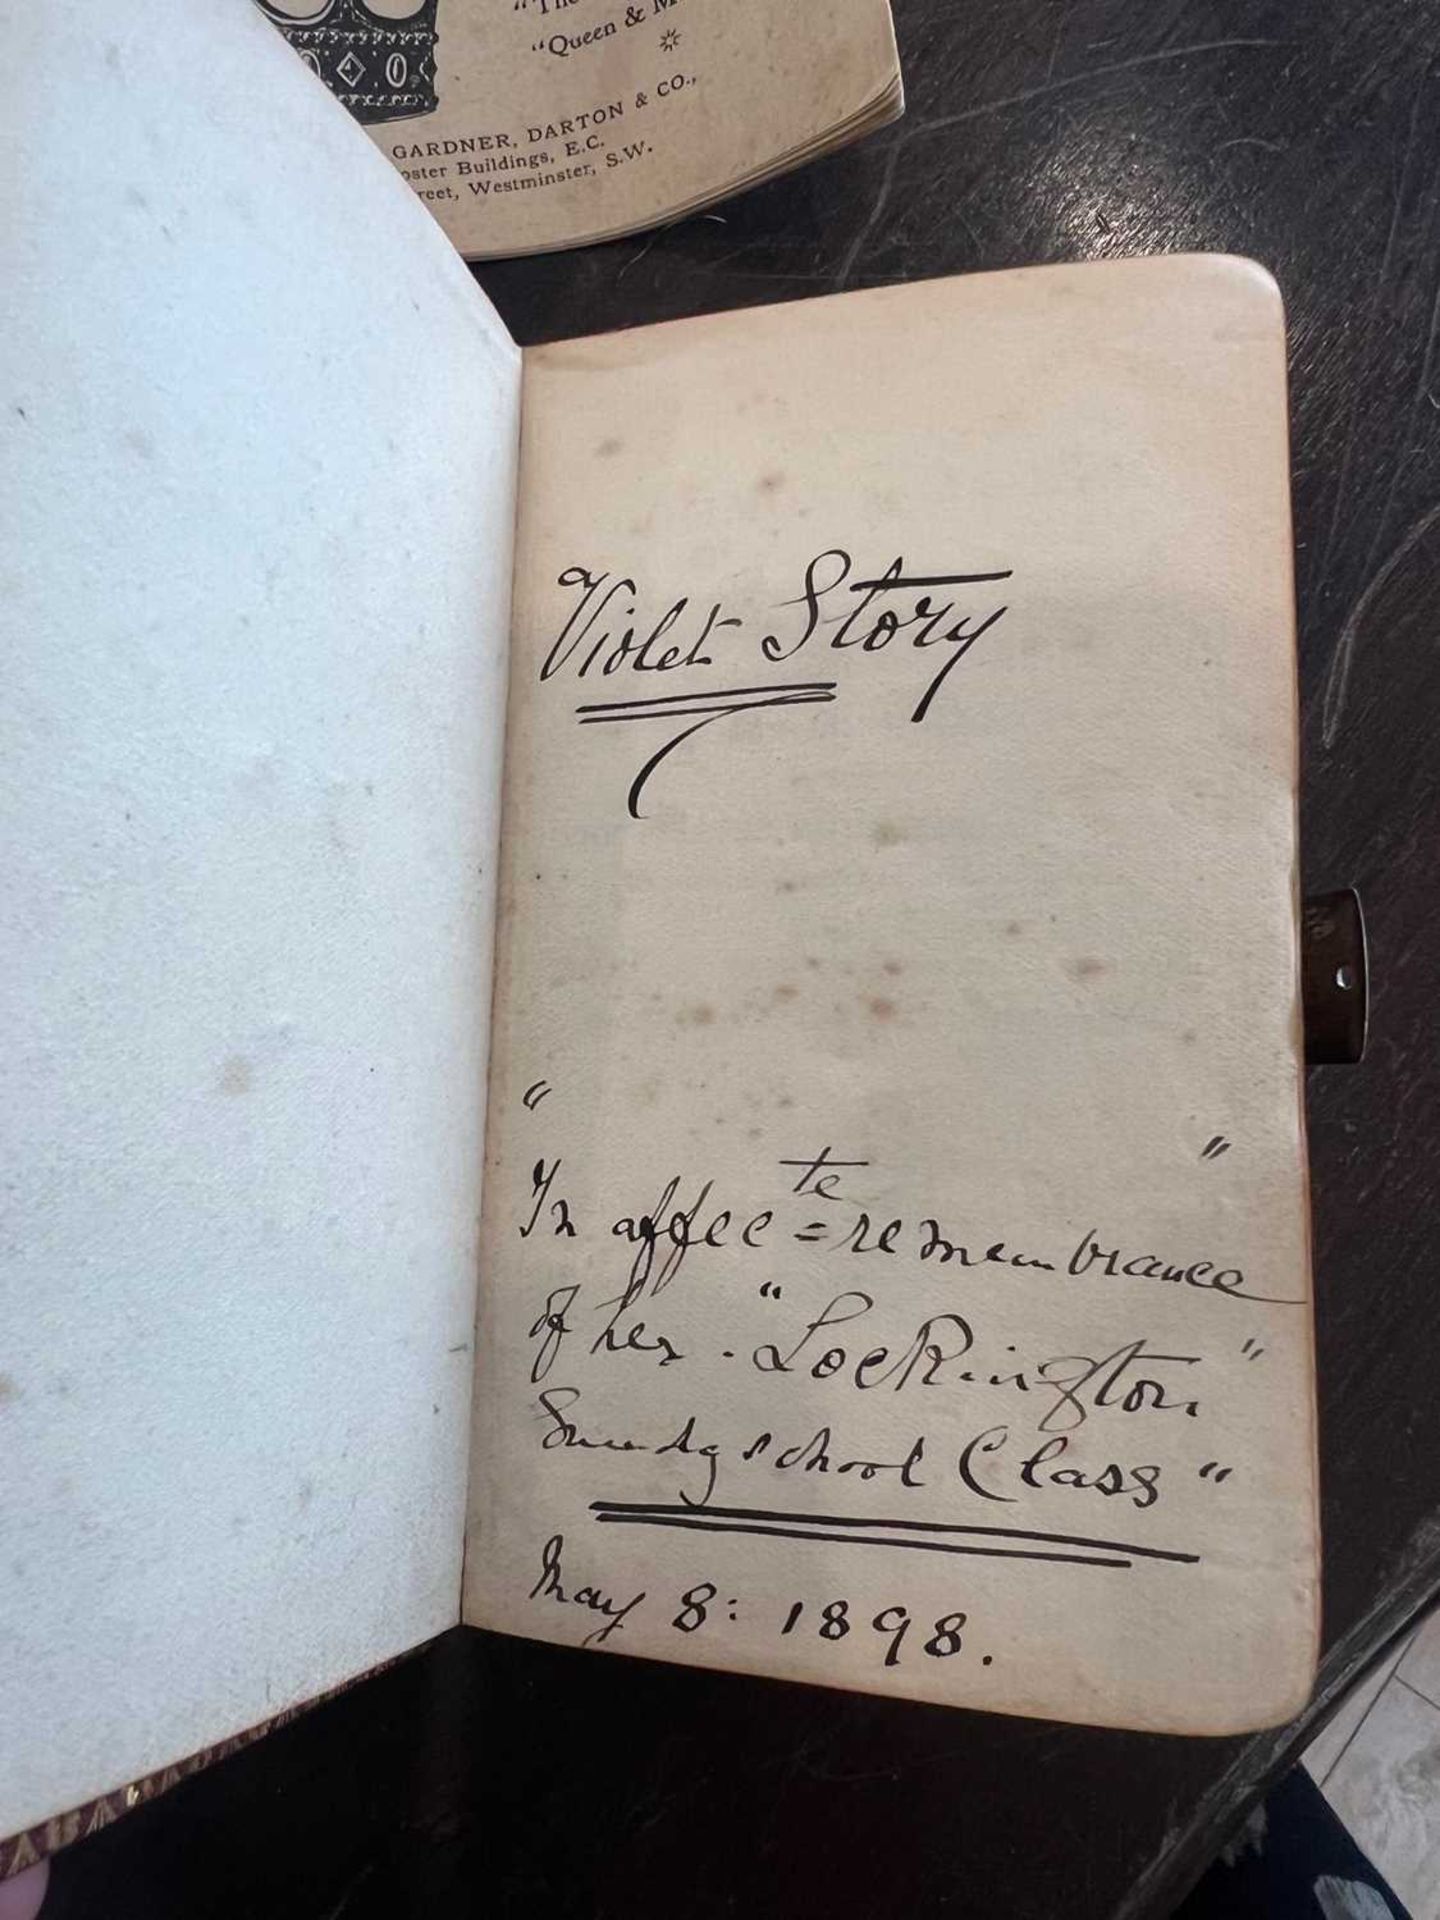 "The
"Queen & M
GARDNER, DARTON & CO.,
oster Buildings, E.C.
reet, Westminster, S.W.
Violet Story
"
In affecte = remembrance "
of her . "Lockington"
Sunday school Class "
May 8: 1898.